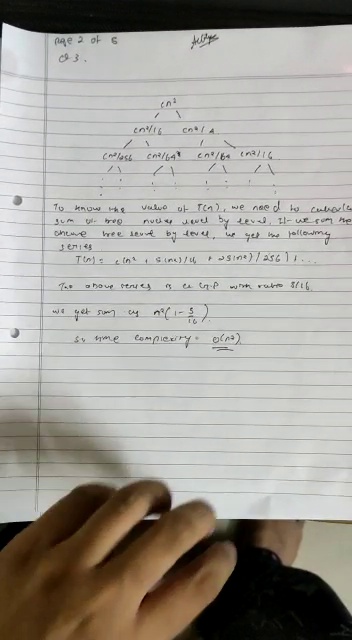 Page 2 of 5
Q3.
cn²
cn²/16 cn²/4
cn²/256 cn²/64 cn²/64 cn²/16
To know the value of T(n), we need to calculate
sum of tree nodes level by level. If we sum the
above tree level by level, we get the following
series
T(n) = c(n² + 5(n²)/16 + 25(n²)/256) + ...
The above series is a G.P with ratio 5/16.
we get sum as n²(1 - 5/16).
So time complexity = O(n²)